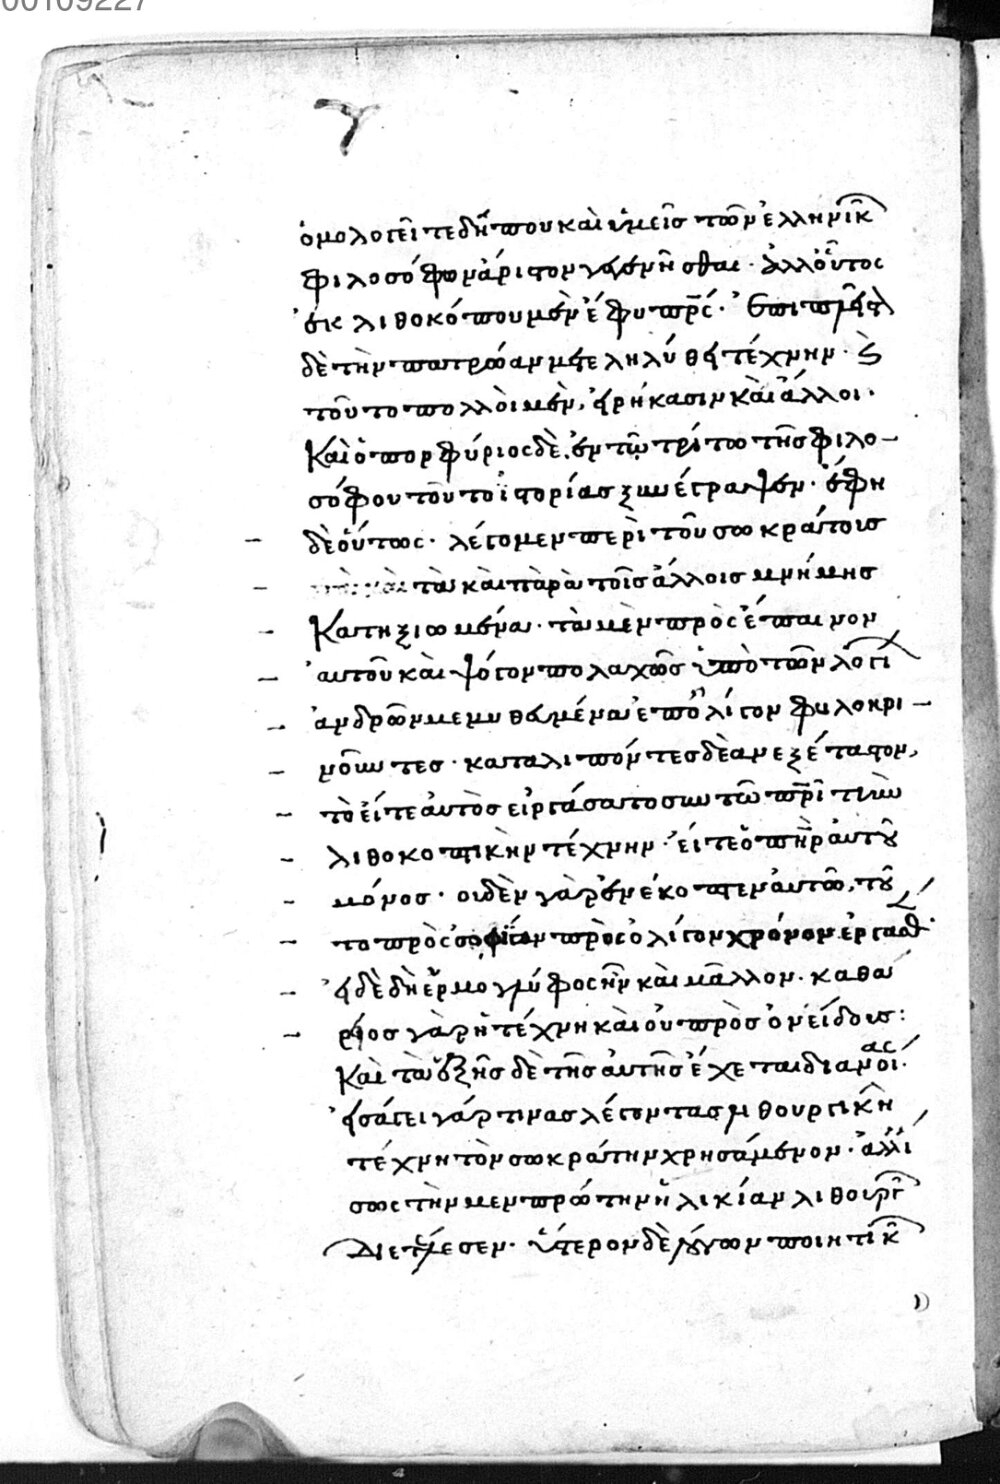 00109227
γ
ὁμολογεῖτε δή που καὶ ὑμεῖς τῶν ἑλληνικ
φιλοσόφων ἄριστον γεγενῆσθαι· ἀλλ' οὗτος
ἐκ λιθοκόπου μὲν ἔφυ πρς·
δὲ τὴν πατρώαν μετεληλύθει τέχνην·
τοῦτο πολλοὶ μὲν, εἰρήκασιν καὶ ἄλλοι·
Καὶ ὁ πορφύριος δὲ ἐν τῷ τρίτω τῆς φιλο-
σόφου τοῦτο ἱστορίας ξυνέγραψεν· ἔφη
δὲ οὕτως· λέγομεν περὶ τοῦ σωκράτους
τὰ καὶ παρὰ τοῖς ἄλλοις μνήμης
Κατηξιωμένα· τὰ μὲν πρὸς ἔπαινον
αὐτοῦ καὶ ψόγον πολαχῶς ὑπὸ τῶν λογί
ἀνδρῶν μεμυθευμένα ἐπ' ὀλίγον φιλοκρι-
νοῦντες· καταλιπόντες δὲ ἀνεξέταστον,
τὸ εἴτε αὐτὸς εἰργάσατο σὺν τῶ πρὶ τὴν
λιθοκοπικὴν τέχνην· εἴτε ὁ πηρ αὐτοῦ
μόνος· οὐδὲν γὰρ ἐνέκοπτεν αὐτῶ, τοῦ
το πρὸς σοφίαν πρὸς ὀλίγον χρόνον ἐργασθ
εἰ δὲ δὴ ἑρμογλύφος ἦν καὶ μᾶλλον· καθα
ρίος γὰρ ἡ τέχνη καὶ οὐ πρὸς ὀνείδους:
Καὶ τὰ ἑξῆς δὲ τῆς αὐτῆς ἔχεται διανοίας·
εἰσάγει γάρ τινας λέγοντας λιθουργικῆ
τέχνη τὸν σωκράτην χρησάμενον· ἀλλ' ἴ
σως τὴν μὲν πρώτην ἡλικίαν λιθουργ
Διετέλεσεν· ὕστερον δὲ λόγων ποιητικ